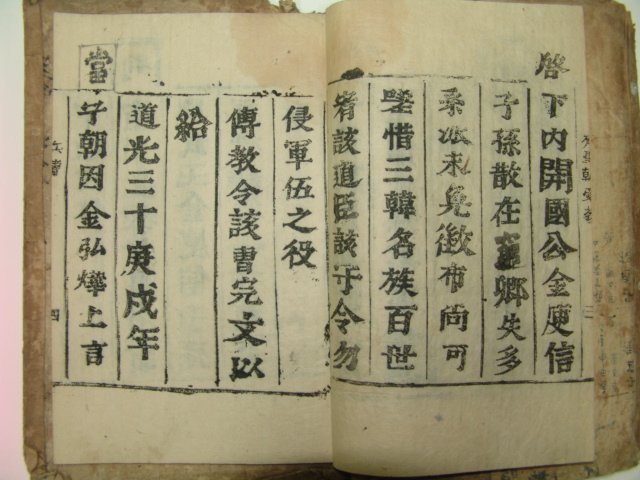 啓
下內開國公金庾信
子孫散在鄉失多
系派未免徵布尙可
惜三韓名族百世
者該道臣該守令勿
侵軍伍之役
傳教令該曹完文以
給
道光三十庚戌年
當
宁朝因金弘燁上言
三
四